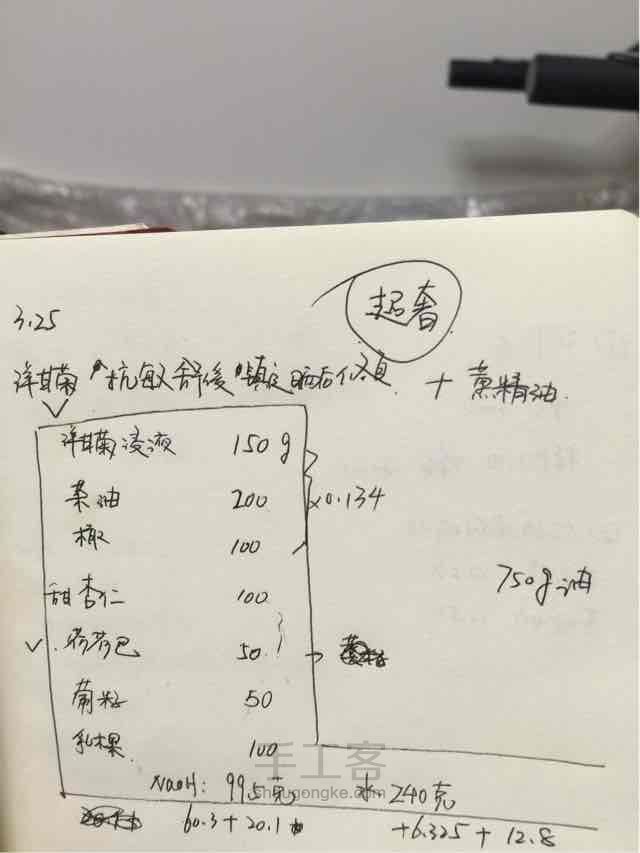 超奢
3.25
洋甘菊"抗敏舒缓"镇定晒后修复 + 薰精油.
洋甘菊浸液 150g
茶油 200 ×0.134
橄 100
甜杏仁 100 750g油
荷荷巴 50
葡籽 50
乳木果 100
NaOH: 99.5克 水 240克
60.3+20.1+6.325+12.8
手工客
shougongke.com